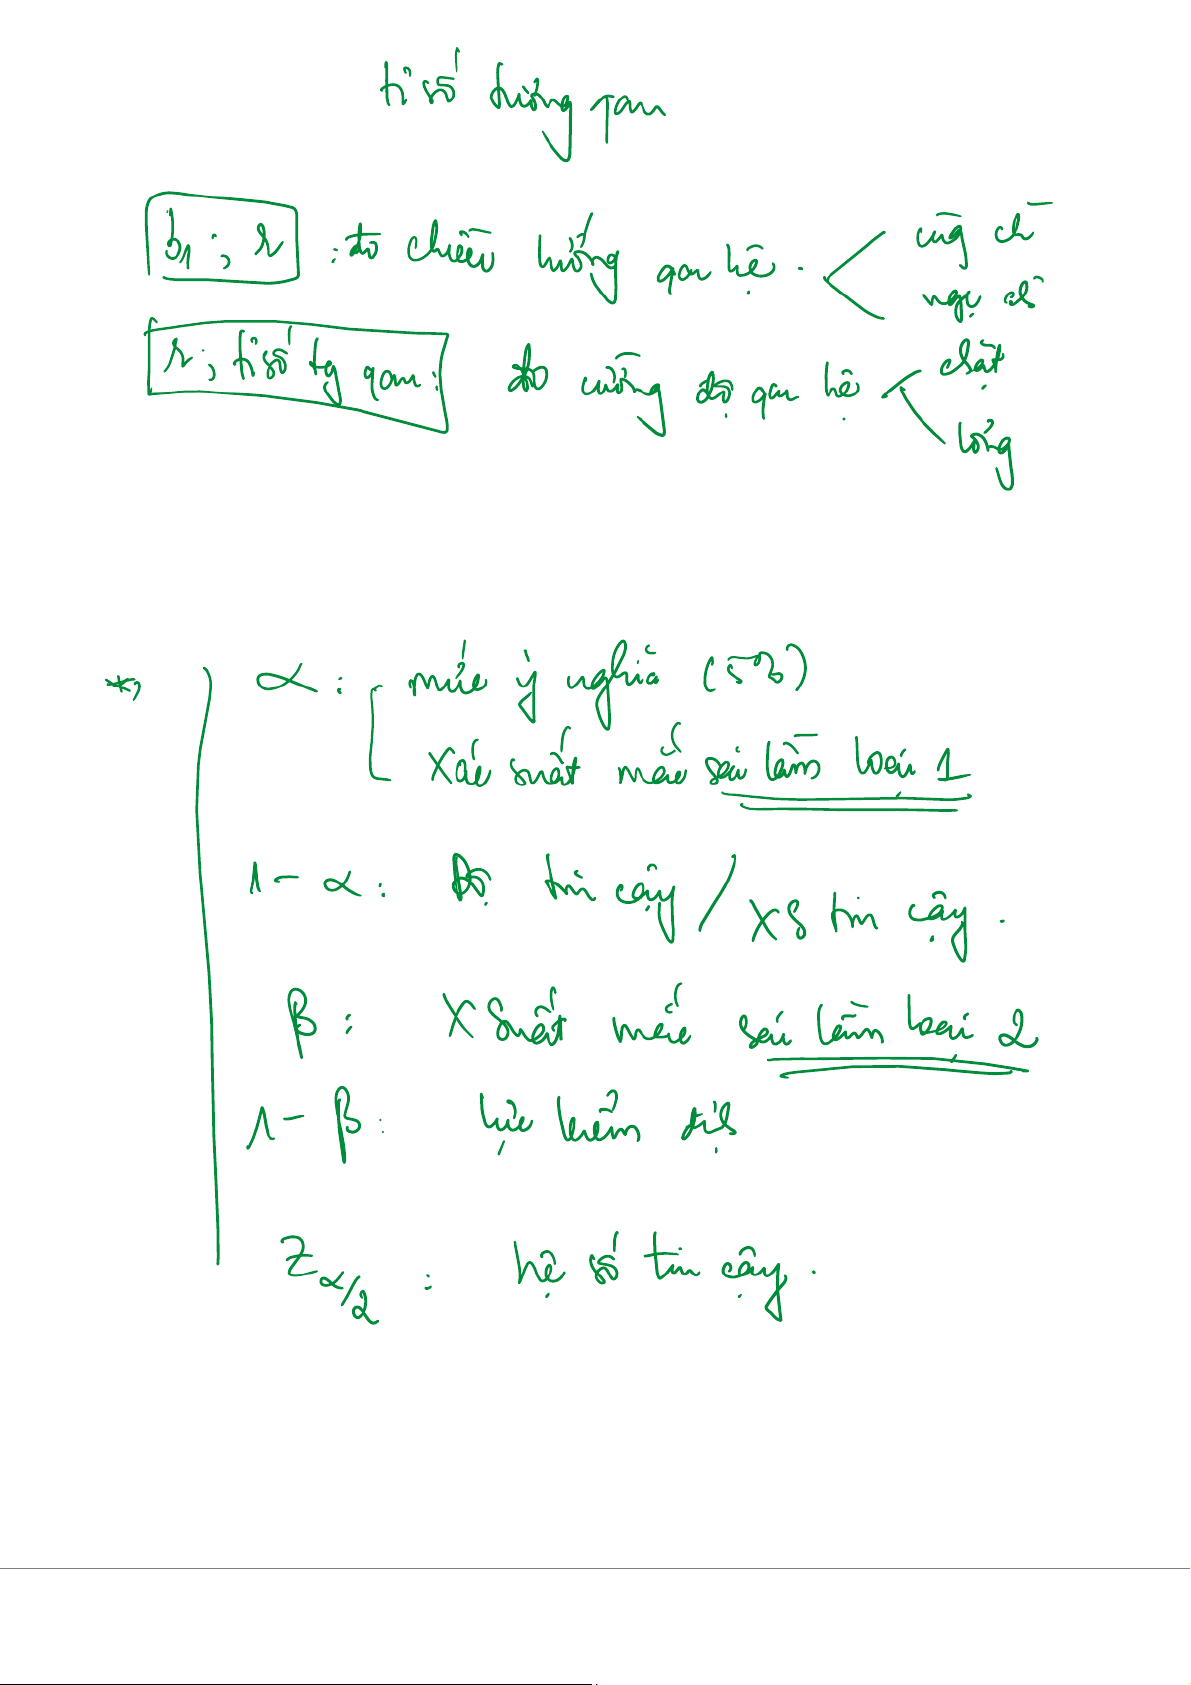 tỉ số tương qan
b1 ; r : đo chiều hướng qan hệ . cùg ch
ngc ch
r ; tỉ số tg qan : đo cường độ qan hệ chặt
lỏng
*, α : mức ý nghĩa (5%)
Xác suất mắc sai lầm loại 1
1 - α : Độ tin cậy / XS tin cậy .
β : X Suất mắc sai lầm loại 2
1 - β : lực kiểm địh
Zα/2 : hệ số tin cậy .